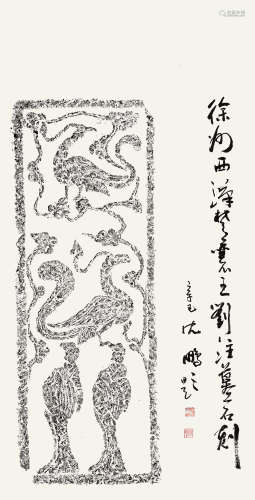 徐州西漢楚襄王劉注墓石刻
辛巳 沈鵬題